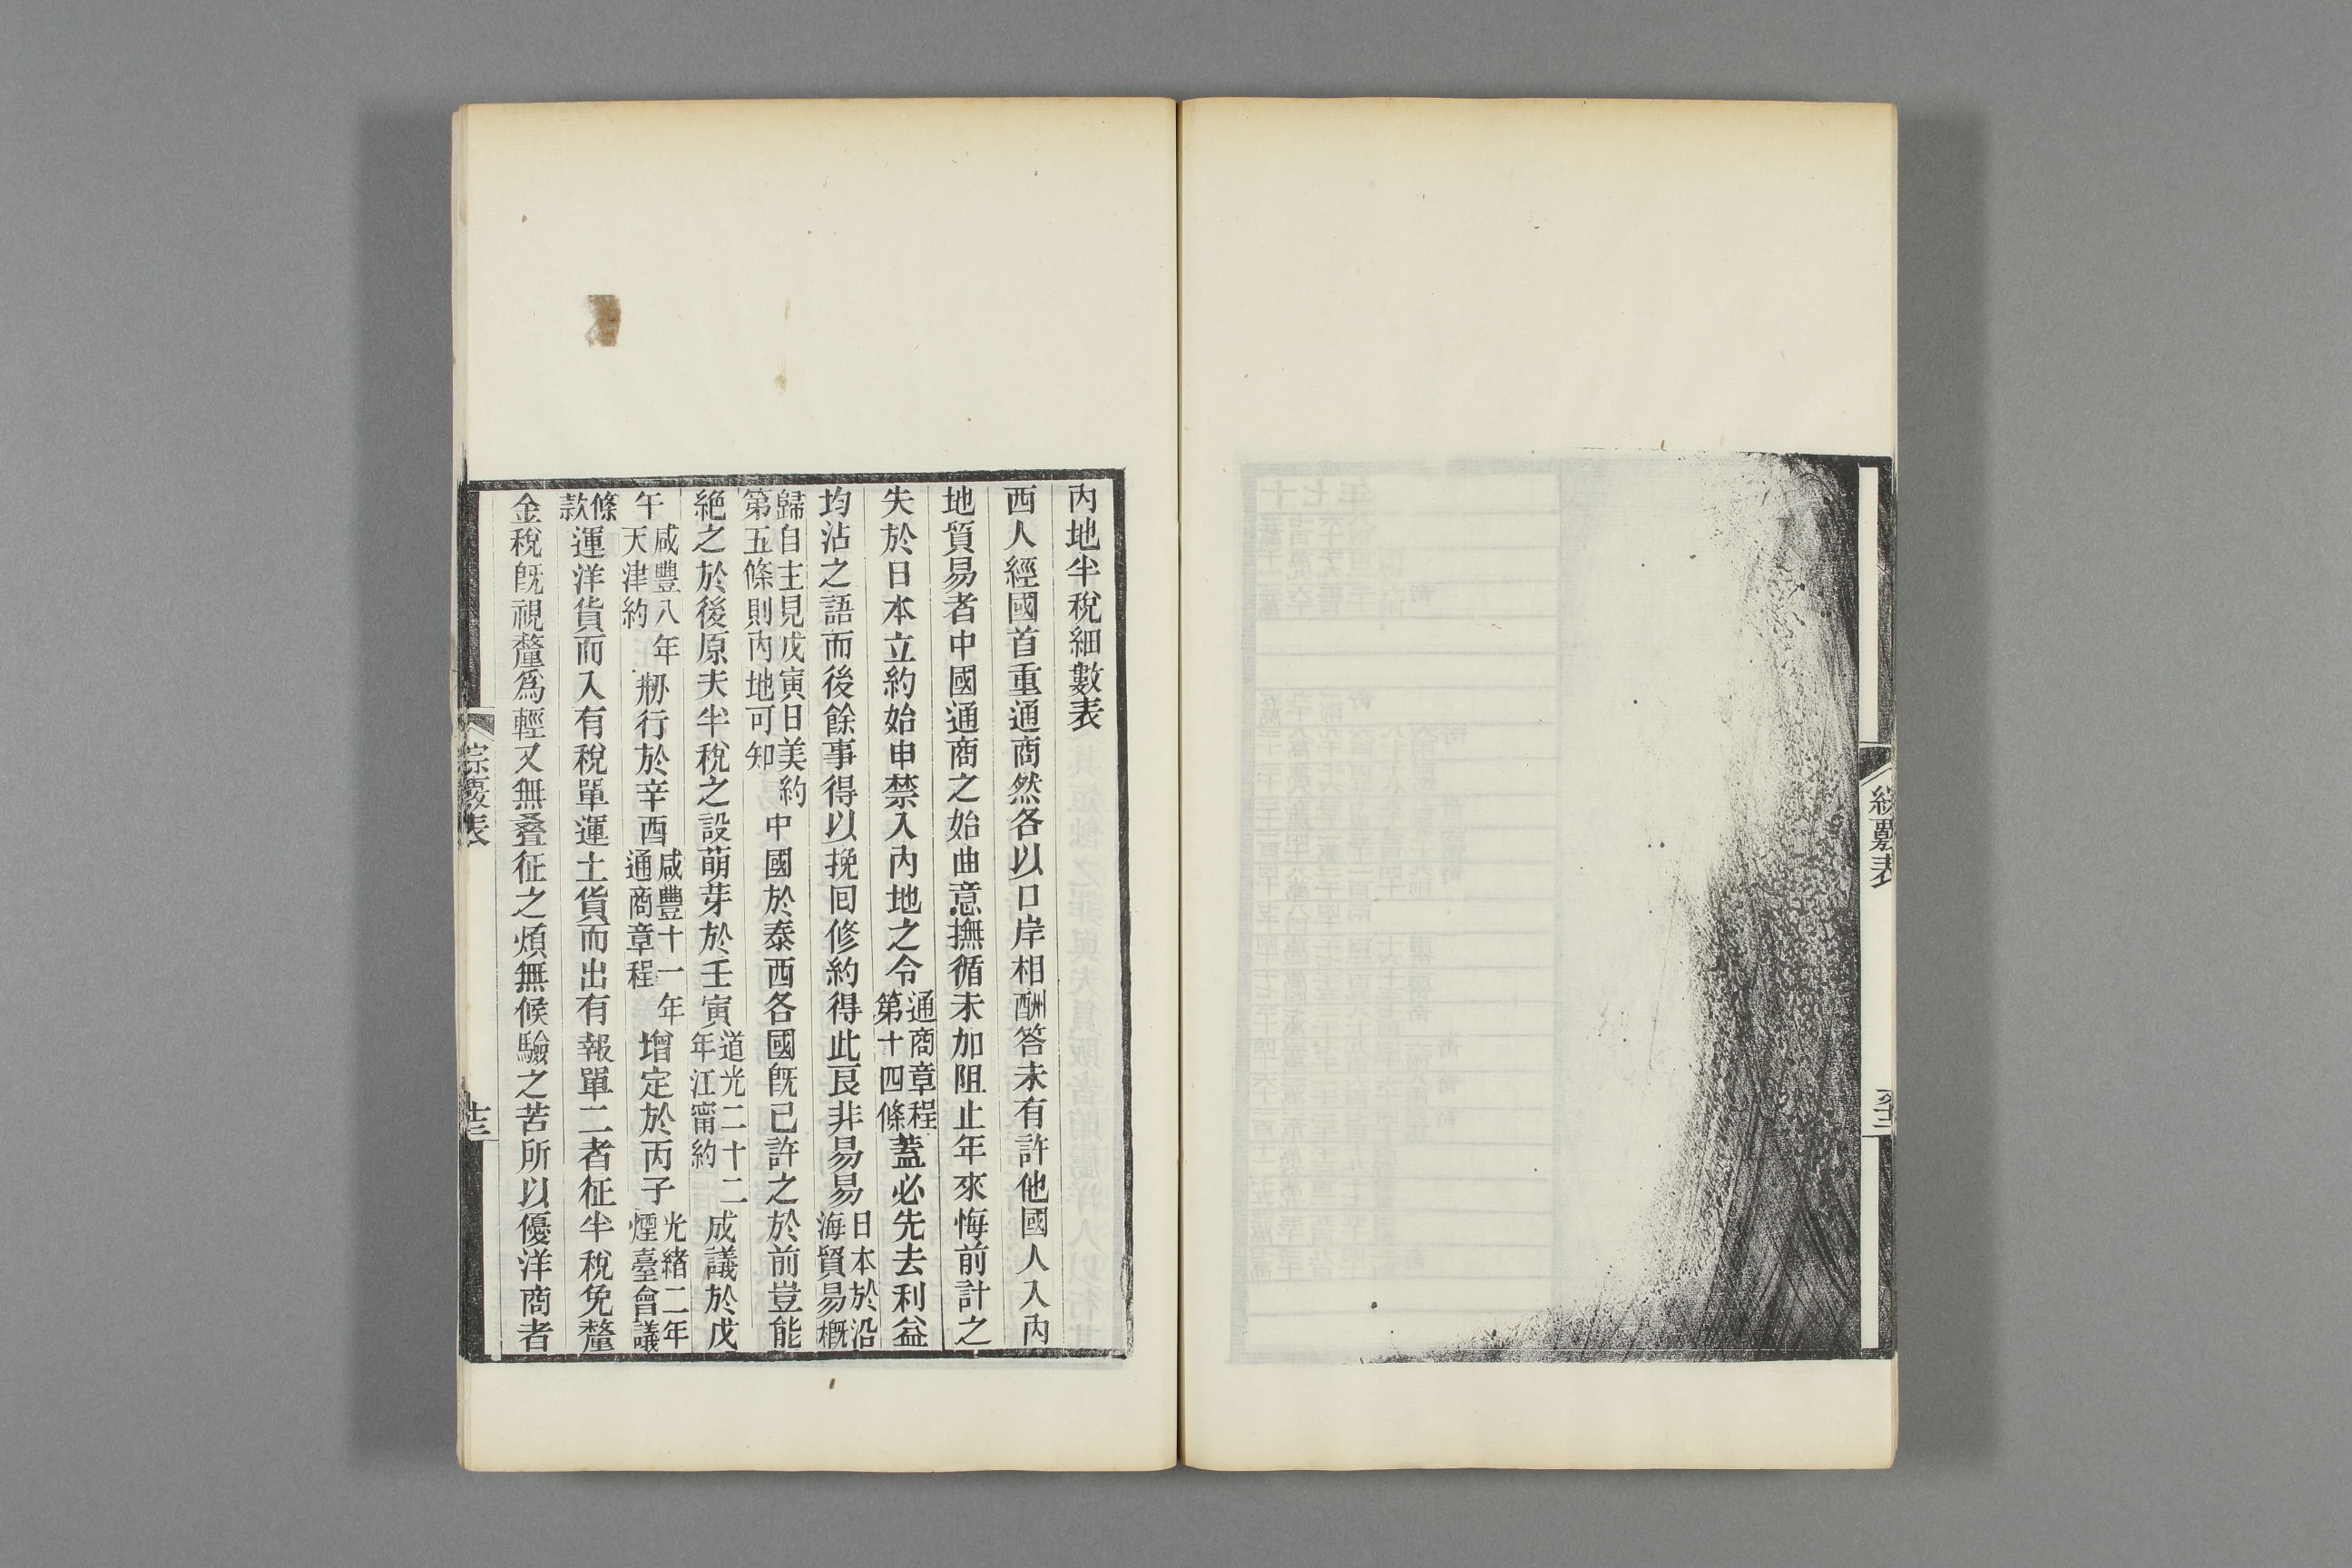 綜覈表
內地半稅細數表
西人經國首重通商然各以口岸相酬答未有許他國人入內
地貿易者中國通商之始曲意撫循未加阻止年來悔前計之
失於日本立約始申禁入內地之令通商章程第十四條蓋必先去利益
均沾之語而後餘事得以挽回修約得此艮非易易日本於沿海貿易槪
歸自主見戊寅日美約第五條則內地可知中國於泰西各國旣已許之於前豈能
絕之於後原夫半稅之設萌芽於壬寅道光二十二年江甯約成議於戊
午咸豐八年天津約剏行於辛酉咸豐十一年通商章程增定於丙子光緒二年煙臺會議
條款運洋貨而入有稅單運土貨而出有報單二者征半稅免釐
金稅旣視釐爲輕又無叠征之煩無候驗之苦所以優洋商者
綜覈表